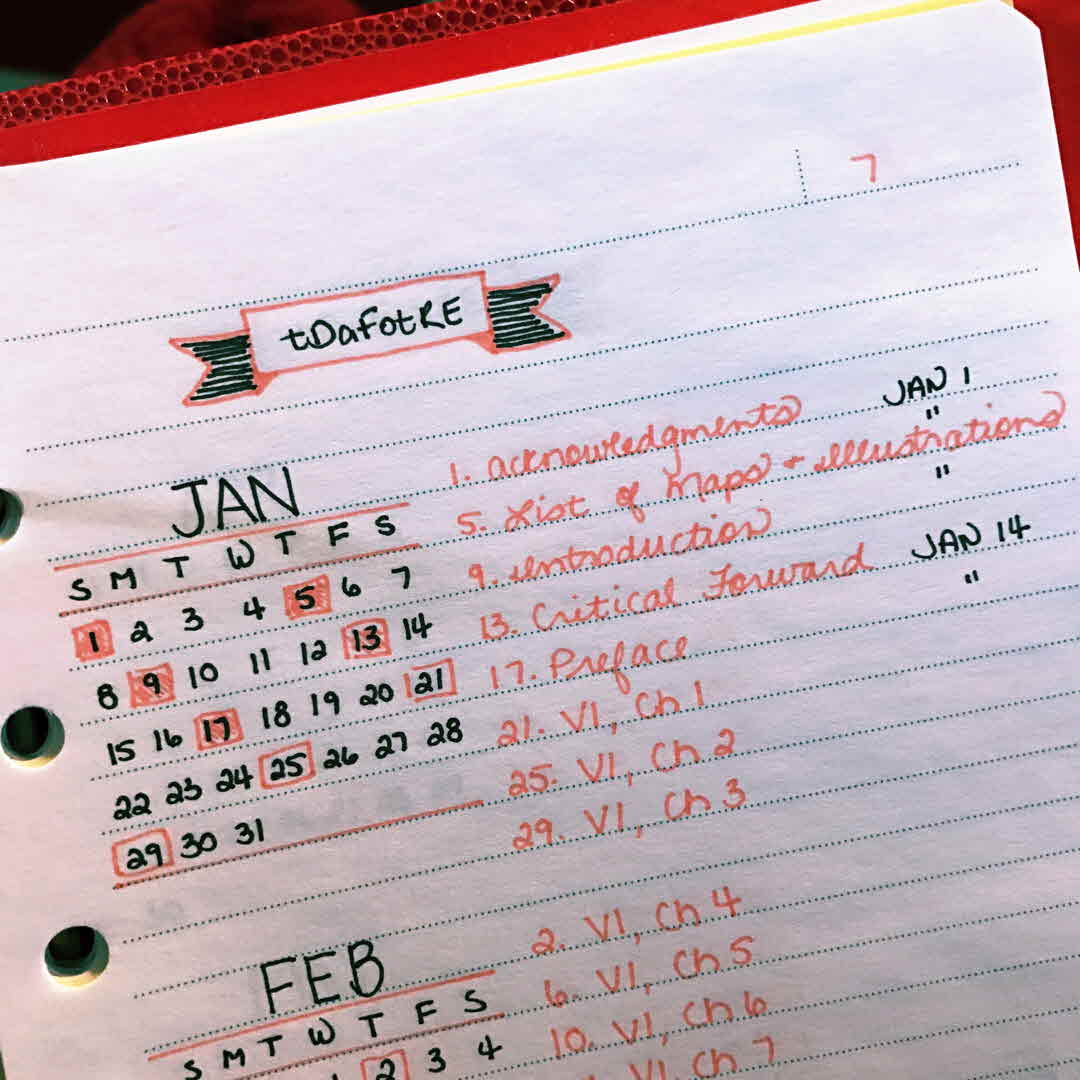 7
tDaFotRE
JAN
S M T W T F S
1 2 3 4 5 6 7
8 9 10 11 12 13 14
15 16 17 18 19 20 21
22 23 24 25 26 27 28
29 30 31
1. acknowledgments JAN 1
5. List of Maps + illustrations "
9. introduction "
13. Critical Forward JAN 14
17. Preface "
21. V1, Ch 1
25. V1, Ch 2
29. V1, Ch 3
FEB
S M T W T F S
2 3 4
2. V1, Ch 4
6. V1, Ch 5
10. V1, Ch 6
V1, Ch 7